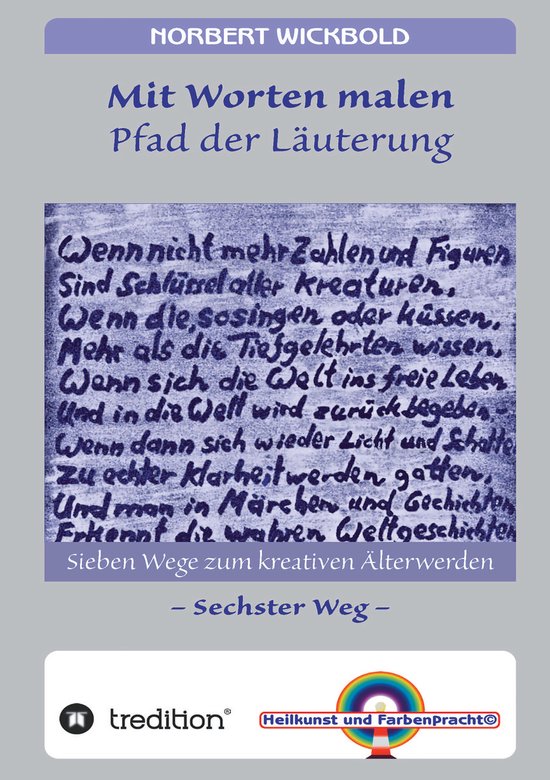 NORBERT WICKBOLD
Mit Worten malen
Pfad der Läuterung
Wenn nicht mehr Zahlen und Figuren
Sind Schlüssel aller Kreaturen,
Wenn die, so singen oder küssen,
Mehr als die Tiefgelehrten wissen,
Wenn sich die Welt ins freie Leben
Und in die Welt wird zurück begeben –
Wenn dann sich wieder Licht und Schatte
Zu echter Klarheit werden gatten,
Und man in Märchen und Gechichten
Erkennt die wahren Weltgeschichten
Sieben Wege zum kreativen Älterwerden
– Sechster Weg –
tredition®
Heilkunst und FarbenPracht©